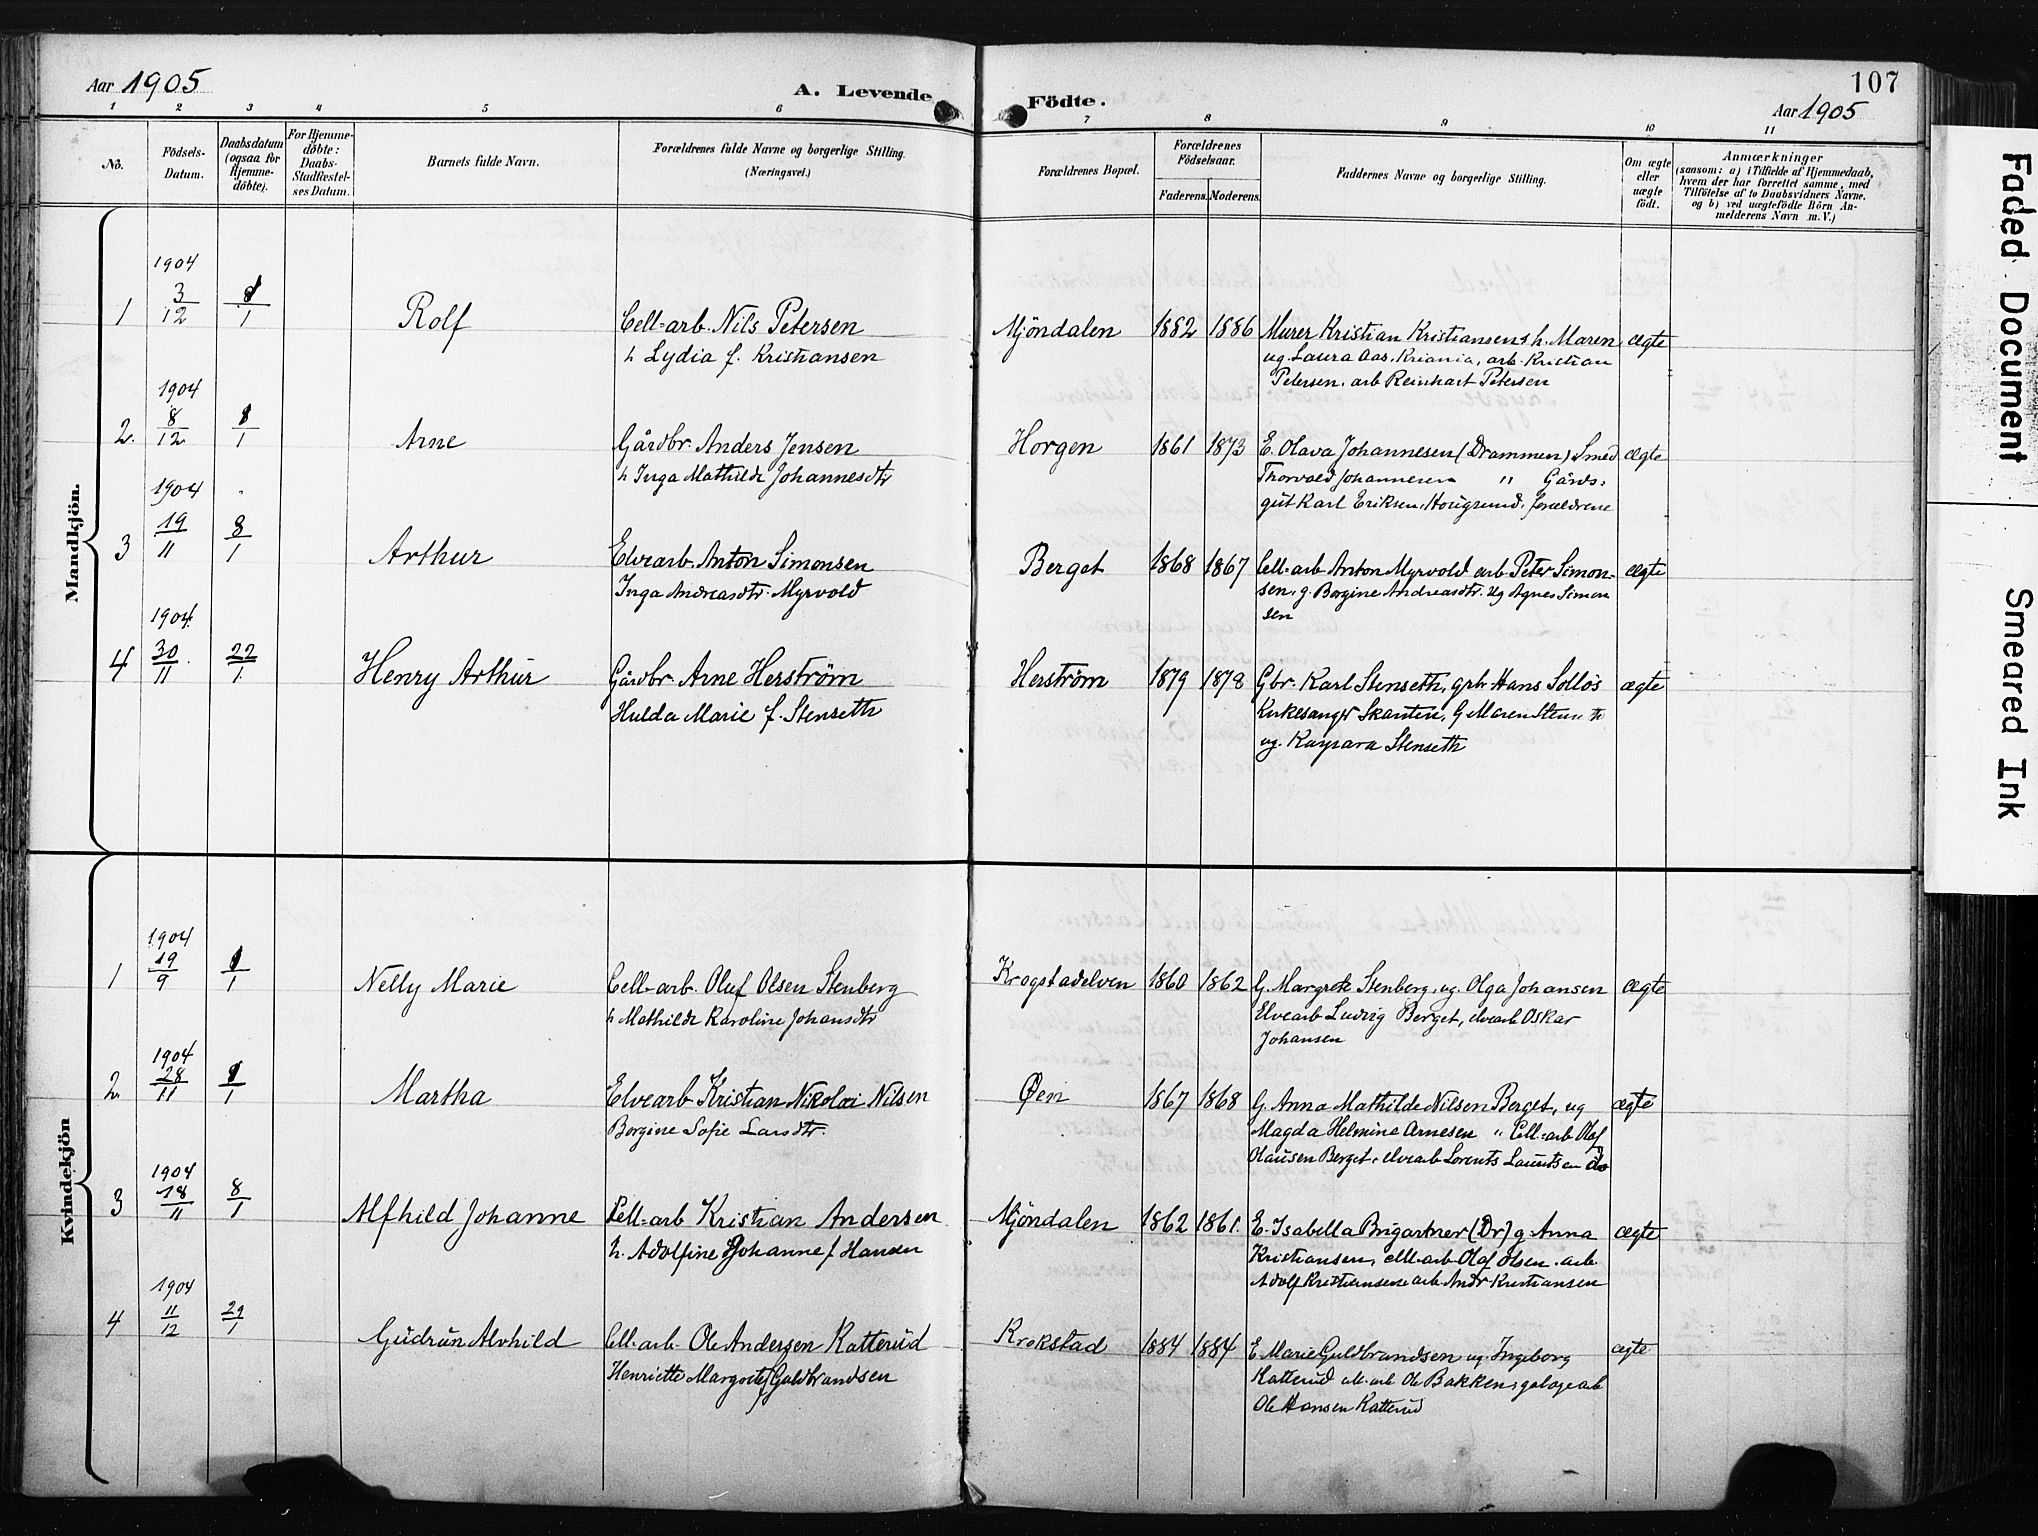 Aar 1905
A. Levende Födte.
107
Aar 1905
1 2 3 4 5 6 7 8 9 10 11
No.
Födsels-Datum.
Daabsdatum (ogsaa for Hjemme-döbte).
For Hjemme-döbte: Daabs-Stadfestel-ses Datum.
Barnets fulde Navn.
Forældrenes fulde Navne og borgerlige Stilling.
(Næringsvei.)
Forældrenes Bopæl.
Forældrenes Födselsaar.
Faderens. Moderens.
Faddernes Navne og borgerlige Stilling.
Om ægte eller uægte födt.
Anmærkninger
(saasom: a) i Tilfælde af Hjemmedaab,
hvem der har forrettet samme, med
Tilföielse af to Daabsvidners Navne,
og b) ved uægtefödte Börn An-
melderens Navn m. V.)
Mandkjön.
1904
1 3/12 8/1 Rolf Cell-arb. Nils Petersen Mjöndalen 1882 1886 Murer Kristian Kristiansen & h. Maren ægte
h Lydia f. Kristiansen ug. Laura Aas. Kriania, arb. Kristian
Petersen, arb Reinhart Petersen
1904
2. 8/12 8/1 Arne Gårdbr. Anders Jensen Horgen 1861 1873 E. Olava Johannesen (Drammen) Smed ægte
h Inga Mathilde Johannesdtr Thorvald Johannesen " Gårds-
gut Karl Eriksen, forældrene
1904
3 19/11 8/1 Arthur Elvearb. Anton Simonsen Berget 1868 1867 Cell-arb Anton Myrvold arb Peter Simon- ægte
Inga Andreasdtr. Myrvold sen, g. Borgine Andreasdtr. Ug Agnes Simon
sen
1904
4 30/11 22/1 Henry Arthur Gårdbr. Arne Herström Herström 1879 1878 Gbr. Karl Stenseth, grb. Hans Sollös ægte
Hulda Marie f. Stenseth Kirkesanger Skanten, G Maren
ug. Kaspara Stenseth
Kvindekjön
1904
1 19/9 8/1 Nelly Marie Cell-arb. Oluf Olsen Stenberg Krogstadelven 1860 1862 G. Margrete Stenberg, ug. Olga Johansen ægte
h Mathilde Karoline Johansdtr Elvearb Ludvig Berget, elvearb Oskar
Johansen
1904
2 28/11 8/1 Martha Elvearb Kristian Nikolai Nilsen Øen 1867 1868 G. Anna Mathilde Nilsen Berget, ug ægte
Borgine Sofie Larsdtr. Magda Helmine Arnesen " Cell-arb Olaf
Olausen Berget, elvearb Lorents Lauritsen do
1904
3 18/11 8/1 Alfhild Johanne Cell-arb Kristian Andersen Mjöndalen 1862 1861. E. Isabella (Dr) g Anna ægte
h. Adolfine Johanne f Hansen Kristiansen, cell-arb Olaf Olsen. arb.
Adolf Kristiansen arb. Andr Kristiansen
1904
4 11/12 29/1 Gudrun Alvhild Cell-arb. Ole Andersen Katterud Krokstad 1884 1884 E Marie Guldbrandsen ug. Ingeborg ægte
Henriette Margrete f Guldbrandsen Katterud cell-arb Ole Bakken,
Ole Hansen Katterud
Faded Document
Smeared Ink